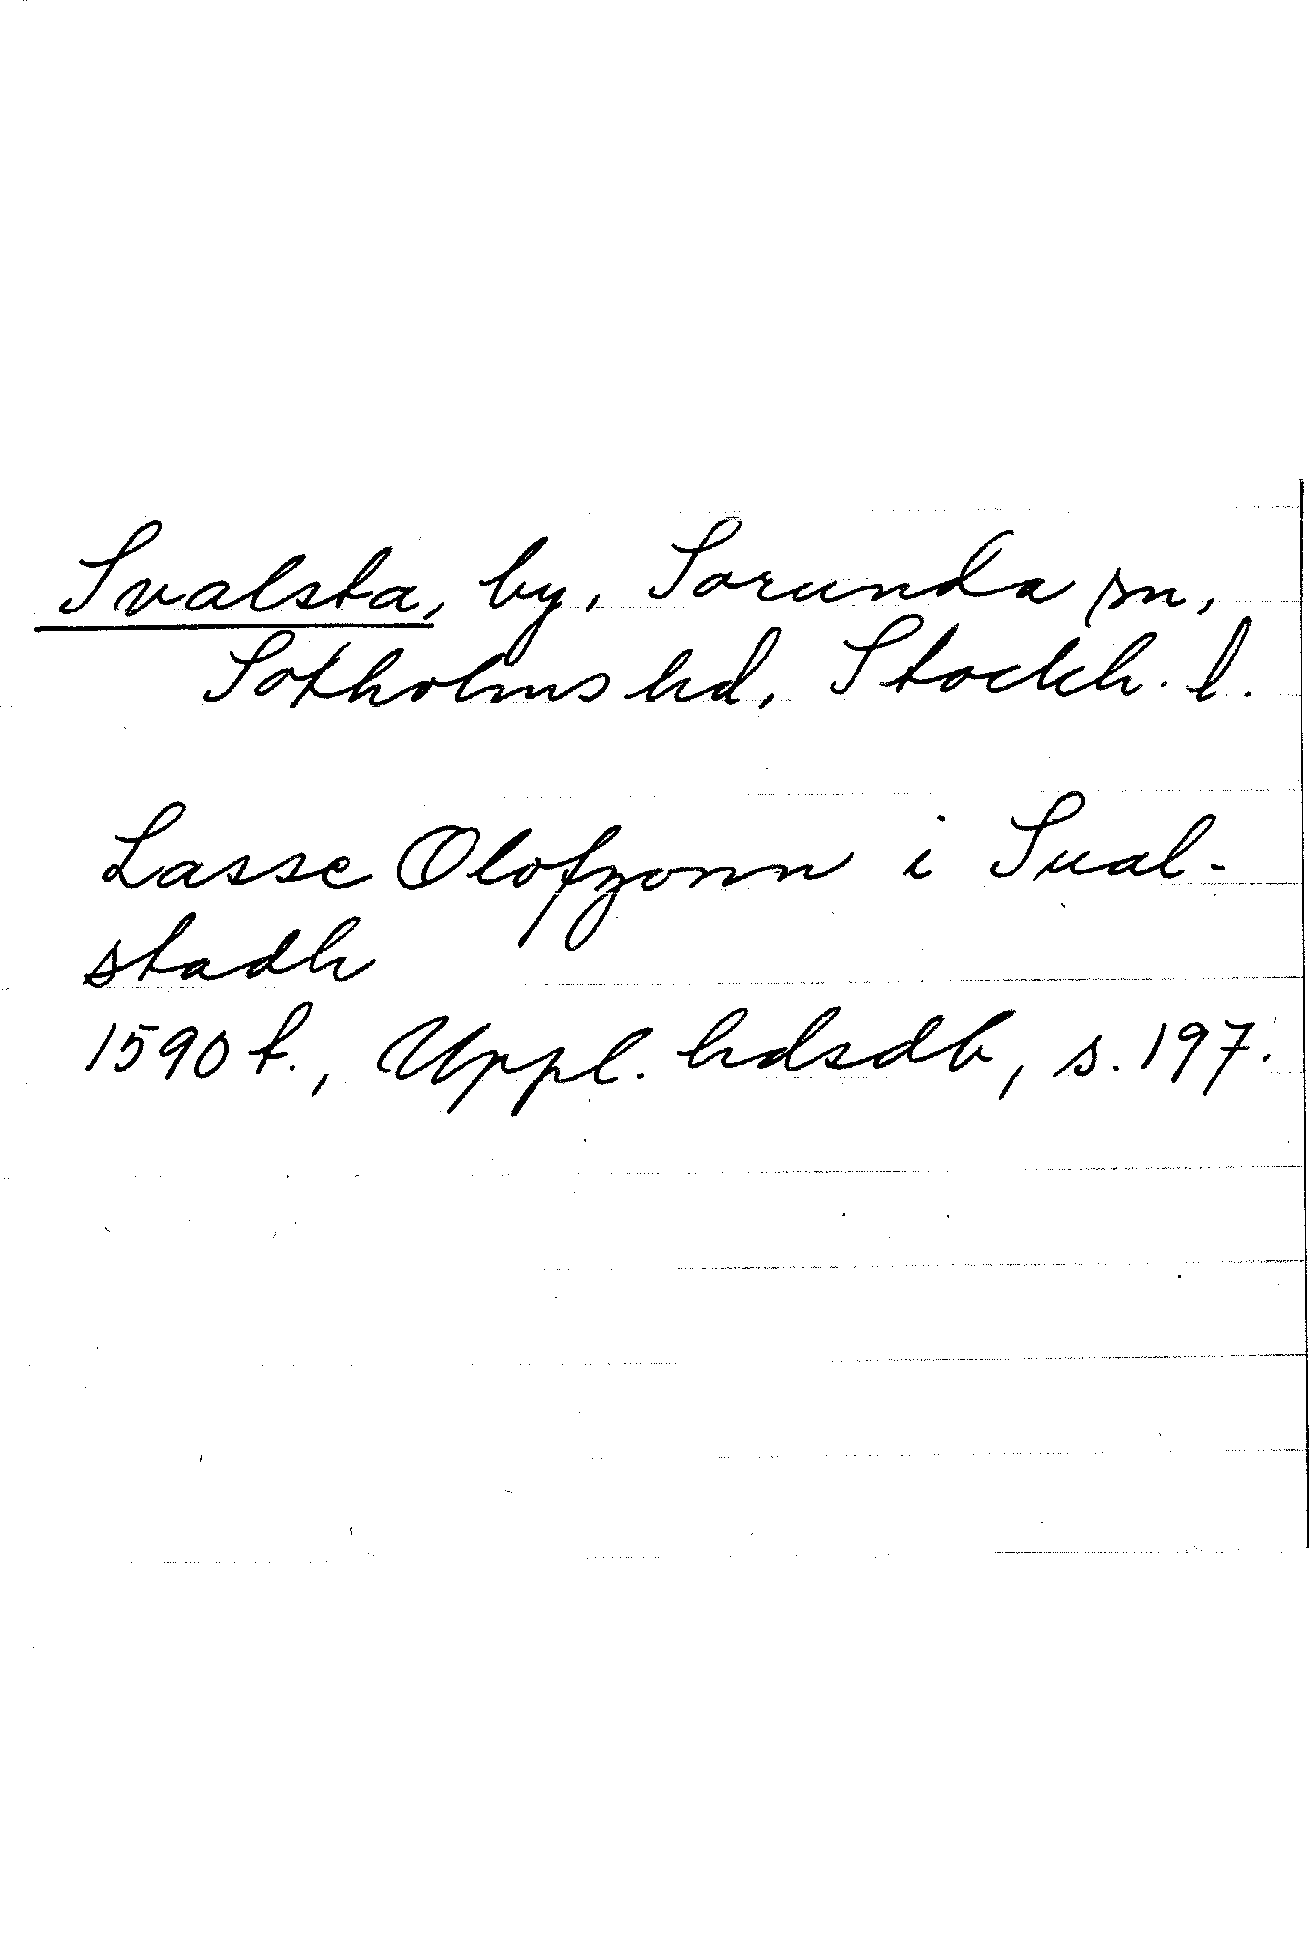 Svalsta, by, Sorunda sn,
Sotholms hd, Stockh. l.
Lasse Olofzonn i Sual-
stadh
1590 t., Uppl. hdsdb, s. 197.